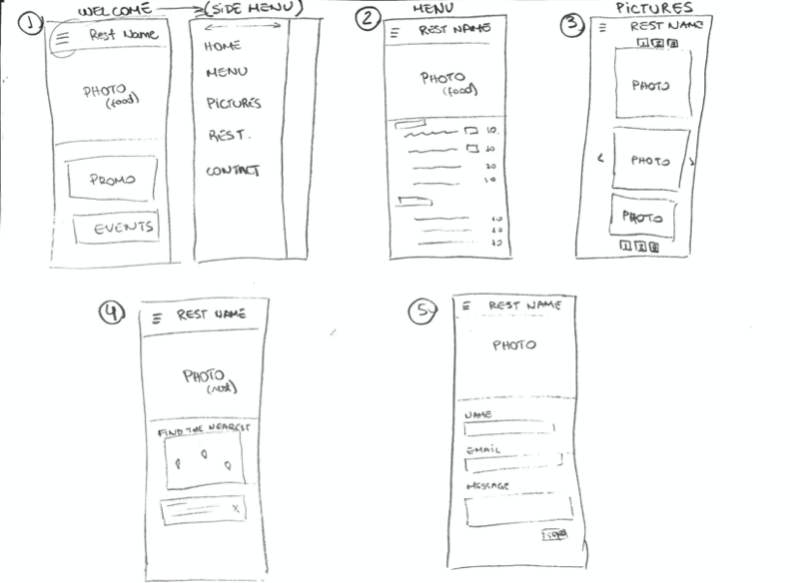 WELCOME → (SIDE MENU)
1
Rest Name
PHOTO
(food)
PROMO
EVENTS
HOME
MENU
PICTURES
REST.
CONTACT
2
MENU
REST NAME
PHOTO
(food)
10
10
10
10
10
10
10
3
PICTURES
REST NAME
1 2 3
PHOTO
< PHOTO >
PHOTO
1 2 3
4
REST NAME
PHOTO
(rest)
FIND THE NEAREST
X
5
REST NAME
PHOTO
NAME
EMAIL
MESSAGE